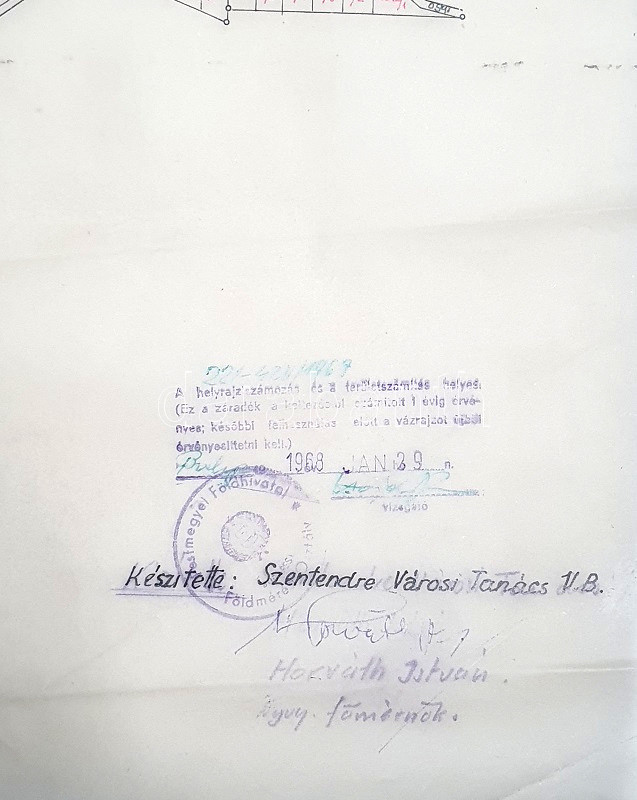 OSMI
A helyrajzi számozás és a területszámítás helyes.
(Ez a záradék a keltezéstől számított 1 évig érvé-
nyes; későbbi felhasználás előtt a vázrajzot újból
érvényesíttetni kell.)
1968 JAN 29. n.
vizsgáló
Pestmegyei Földhivatal
Földmérési Osztály
Készítette: Szentendre Városi Tanács V.B.
Horváth István.
főmérnök.